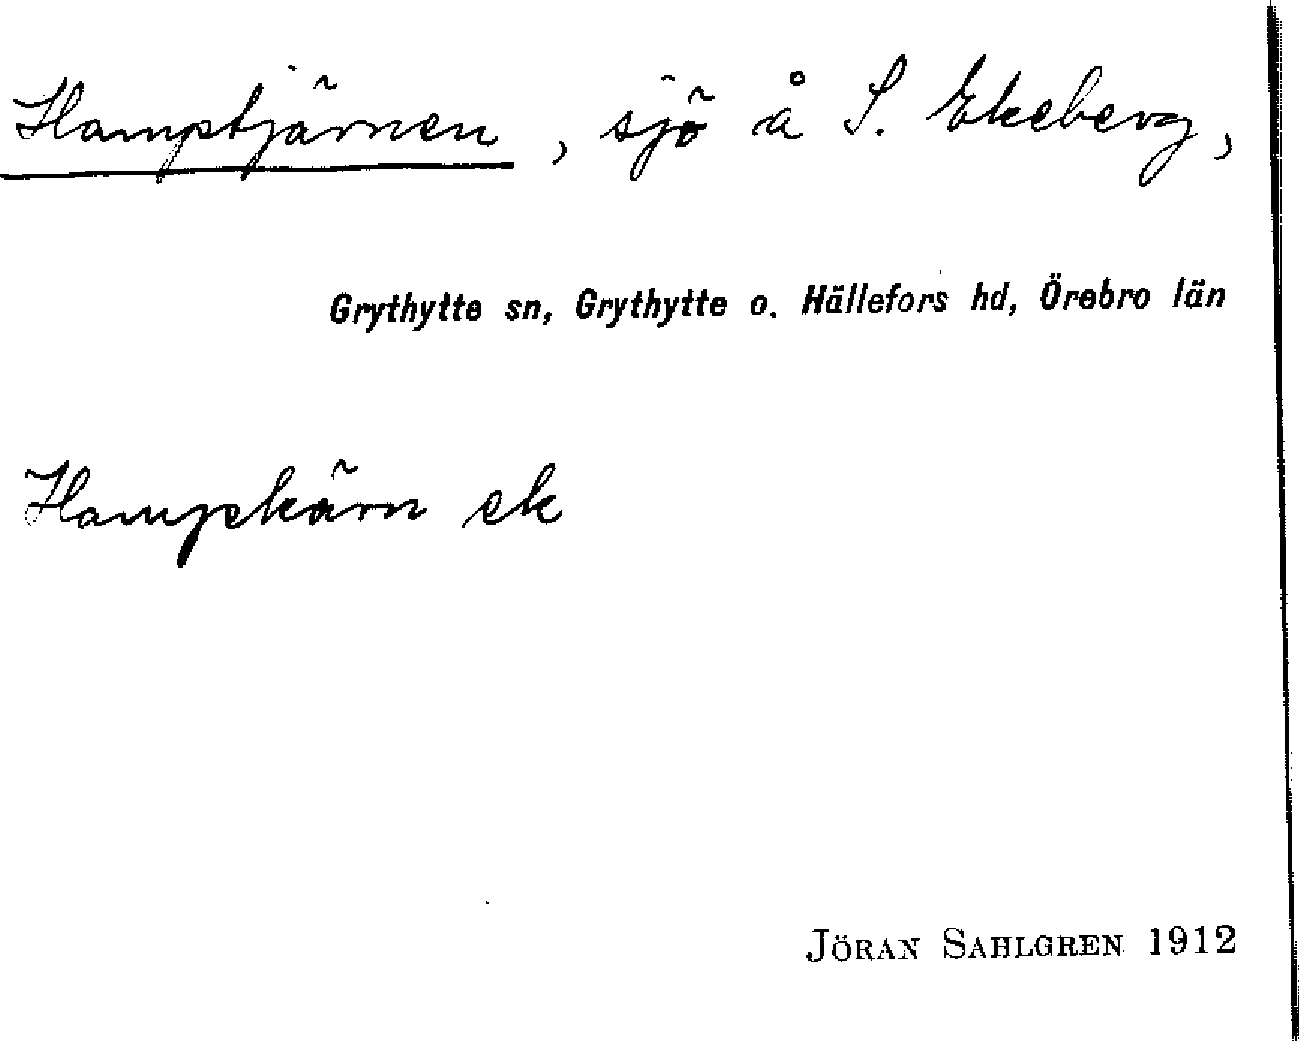 Hamptjärnen, sjö å S. Ekeberg,
Grythytte sn, Grythytte o. Hällefors hd, Örebro län
Hampkärn ek
JÖRAN SAHLGREN 1912